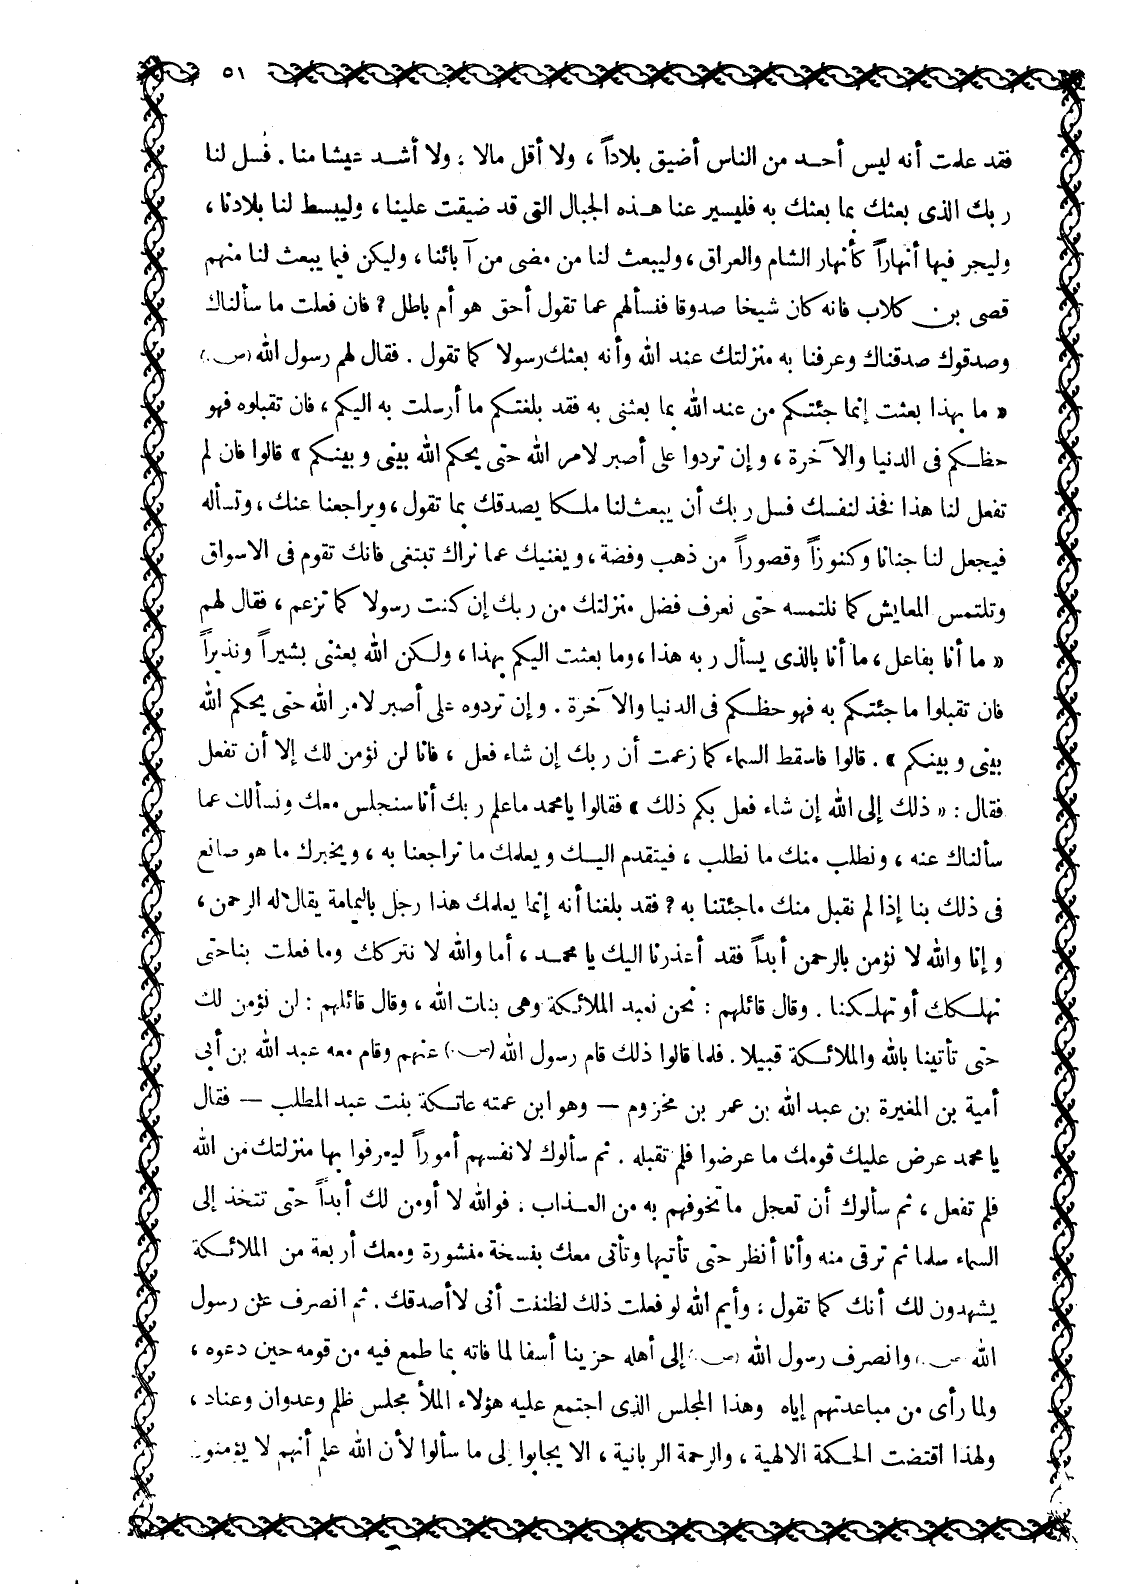 ٥١
فقد علمت أنه ليس أحد من الناس أضيق بلاداً ، ولا أقل مالا ، ولا أشد عيشا منا . فسل لنا
ربك الذى بعثك بما بعثك به فليسير عنا هذه الجبال التى قد ضيقت علينا ، وليبسط لنا بلادنا ،
وليجر فيها أنهاراً كأنهار الشام والعراق ، وليبعث لنا من مضى من آبائنا ، وليكن فيما يبعث لنا منهم
قصى بن كلاب فانه كان شيخا صدوقا فنسألهم عما تقول أحق هو أم باطل ؟ فان فعلت ما سألناك
وصدقوك صدقناك وعرفنا به منزلتك عند الله وأنه بعثك رسولا كما تقول . فقال لهم رسول الله (ص.)
« ما بهذا بعثت إنما جئتكم من عند الله بما بعثنى به فقد بلغتكم ما أرسلت به اليكم ، فان تقبلوه فهو
حظكم فى الدنيا والآخرة ، وإن تردوا على أصبر لامر الله حتى يحكم الله بينى وبينكم » قالوا فان لم
تفعل لنا هذا فخذ لنفسك فسل ربك أن يبعث لنا ملكا يصدقك بما تقول ، ويراجعنا عنك ، وتسأله
فيجعل لنا جنانا وكنوزاً وقصوراً من ذهب وفضة ، ويغنيك عما نراك تبتغى فانك تقوم فى الاسواق
وتلتمس المعايش كما نلتمسه حتى نعرف فضل منزلتك من ربك إن كنت رسولا كما تزعم ، فقال لهم
« ما أنا بفاعل ، ما أنا بالذى يسأل ربه هذا ، وما بعثت اليكم بهذا ، ولكن الله بعثنى بشيراً ونذيراً
فان تقبلوا ما جئتكم به فهو حظكم فى الدنيا والآخرة . وإن تردوه على أصبر لامر الله حتى يحكم الله
بينى وبينكم » . قالوا فاسقط السماء كما زعمت أن ربك إن شاء فعل ، فانا لن نؤمن لك إلا أن تفعل
فقال : « ذلك إلى الله إن شاء فعل بكم ذلك » فقالوا يامحمد ماعلم ربك أنا سنجلس معك ونسألك عما
سألناك عنه ، ونطلب منك ما نطلب ، فيتقدم اليك ويعلمك ما تراجعنا به ، ويخبرك ما هو صانع
فى ذلك بنا إذا لم نقبل منك ماجئتنا به ؟ فقد بلغنا أنه إنما يعلمك هذا رجل باليمامة يقال له الرحمن ،
وإنا والله لا نؤمن بالرحمن أبداً فقد أعذرنا اليك يا محمد ، أما والله لا نتركك وما فعلت بنا حتى
نهلكك أو تهلكنا . وقال قائلهم : نحن نعبد الملائكة وهى بنات الله ، وقال قائلهم : لن نؤمن لك
حتى تأتينا بالله والملائكة قبيلا . فلما قالوا ذلك قام رسول الله (ص.) عنهم وقام معه عبد الله بن أبى
أمية بن المغيرة بن عبد الله بن عمر بن مخزوم — وهو ابن عمته عاتكة بنت عبد المطلب — فقال
يا محمد عرض عليك قومك ما عرضوا فلم تقبله . ثم سألوك لانفسهم أموراً ليعرفوا بها منزلتك من الله
فلم تفعل ، ثم سألوك أن تعجل ما تخوفهم به من العذاب . فوالله لا أومن لك أبداً حتى تتخذ إلى
السماء سلما ثم ترقى منه وأنا أنظر حتى تأتيها وتأتى معك بنسخة منشورة ومعك أربعة من الملائكة
يشهدون لك أنك كما تقول ، وأيم الله لو فعلت ذلك لظننت أنى لا أصدقك . ثم انصرف عن رسول
الله (ص.) وانصرف رسول الله (ص.) إلى أهله حزينا أسفا لما فاته بما طمع فيه من قومه حين دعوه ،
ولما رأى من مباعدتهم إياه وهذا المجلس الذى اجتمع عليه هؤلاء الملأ مجلس ظلم وعدوان وعناد ،
ولهذا اقتضت الحكمة الالهية ، والرحمة الربانية ، الا يجابوا إلى ما سألوا لأن الله علم أنهم لا يؤمنون